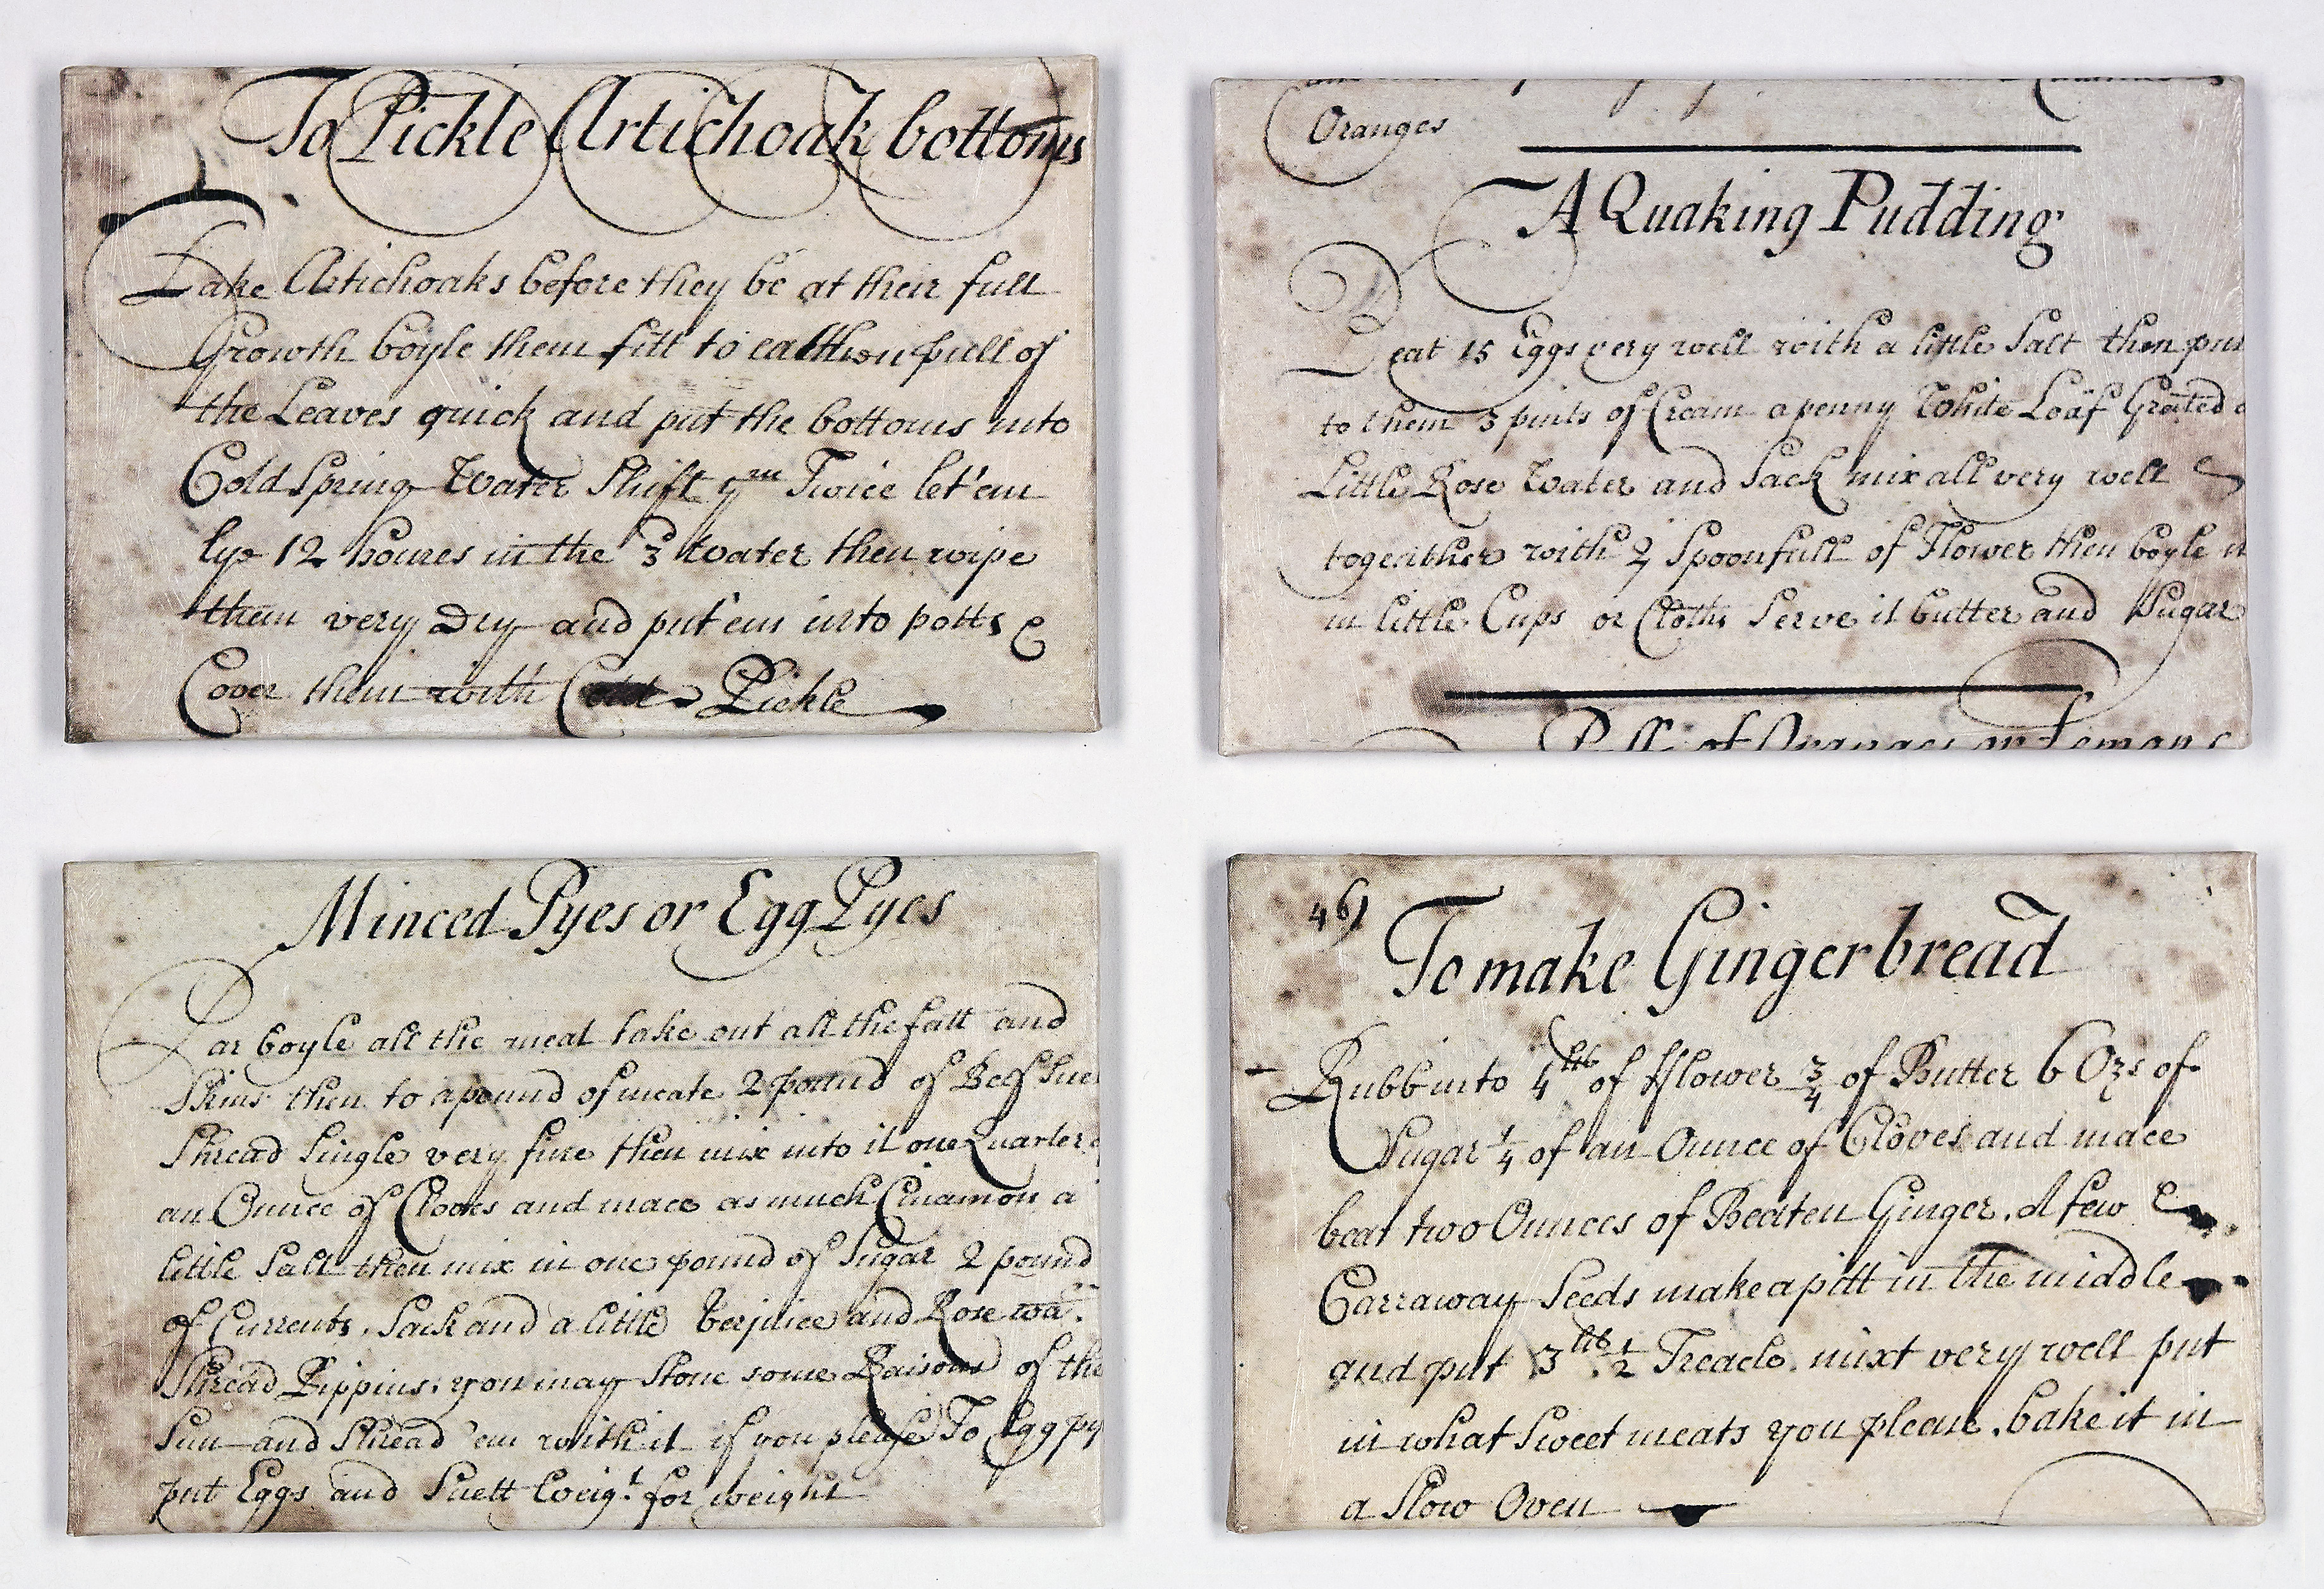 To Pickle Artichoak bottoms
Take Artichoaks before they be at their full
Growth boyle them fitt to eat then pull of
the Leaves quick and put the bottoms into
Cold Spring Water Shift ym Twice let'em
lye 12 houres in the 3 water then wipe
them very Dry and put'em into potts &
Cover them with Cold Pickle
Oranges
A Quaking Pudding
Beat 15 Eggs very well with a little Salt then put
to them 3 pints of Cream a penny White Loaf Grated a
Little Rose Water and Sack mix all very well
togeither with 2 Spoonfull of Flower then boyle it
in little Cups or Cloths Serve it butter and Sugar
of Oranges or Lemons
Minced Pyes or Egg Pyes
Par boyle all the meat take out all the fatt and
Skins then to a pound of meate 2 pound of Beef Sue
Shread Single very fine then mix into it one Quarter of
an Ounce of Cloves and mace as much Cinamon a
little Salt then mix in one pound of Sugar 2 pound
of Currents, Sack and a little Verjuice and Rose wa:
Shread Pippins. you may Stone some Raisons of the
Sun and Shread 'em with it if you please To Egg py
put Eggs and Suett Weig.t for weight
46)
To make Gingerbread
Rubb into 4 lb of fflower 3/4 of Butter 6 Ozs of
Sugar 1/4 of an Ounce of Cloves and mace
beat two Ounces of Beaten Ginger. A few
Carraway Seeds make a pitt in the middle
and put 3 lb. 1/2 Treacle. mixt very well put
in what Sweet meats you please. bake it in
a Slow Oven